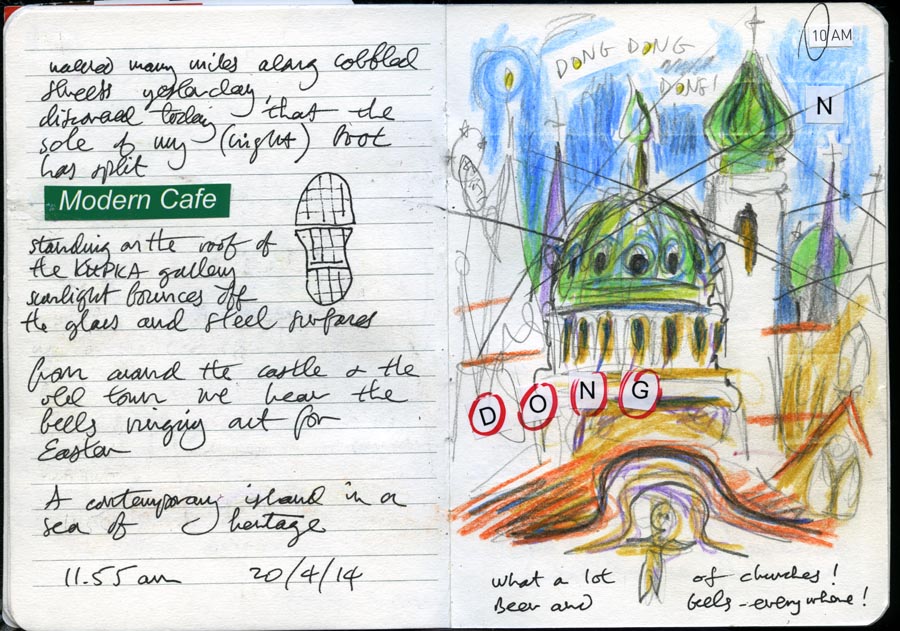 walked many miles along cobbled
streets yesterday,
discovered today that the
sole of my (right) boot
has split
Modern Cafe
standing on the roof of
the gallery
sunlight bounces off
the glass and steel surfaces
from around the castle & the
old town we hear the
bells ringing out for
Easter
A contemporary island in a
sea of heritage
11.55 am 20/4/14
10 AM
DONG DONG
DONG!
N
DONG
what a lot of churches!
Beer and bells - everywhere!